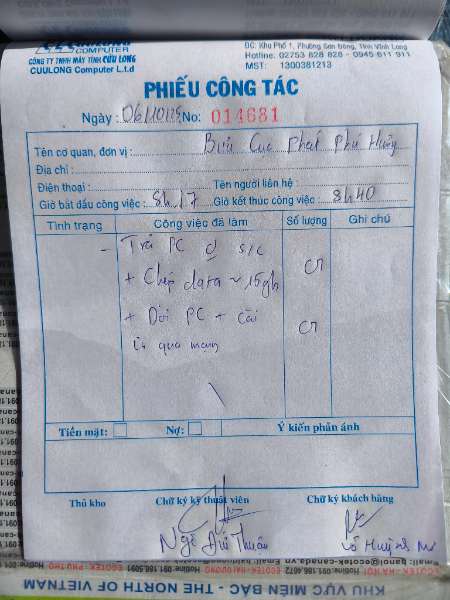 CUULONG
COMPUTER
CÔNG TY TNHH MÁY TÍNH CỬU LONG
CUULONG Computer L.t.d
ĐC: Khu Phố 1, Phường Sơn Đông, Tỉnh Vĩnh Long
Hotline: 02753 828 828 - 0945 611 911
MST: 1300381213
PHIẾU CÔNG TÁC
Ngày: 06/10/25 No: 014681
Tên cơ quan, đơn vị: Bưu Cục Phát Phú Hưng
Địa chỉ:
Điện thoại: Tên người liên hệ:
Giờ bắt đầu công việc: 8h17 Giờ kết thúc công việc: 8h40
Tình trạng Công việc đã làm Số lượng Ghi chú
- Trả PC đ s/c
+ Chép data ~ 15gb
+ Dời PC + Cài
in qua mạng
Tiền mặt: Nợ: Ý kiến phản ánh
Thủ kho Chữ ký kỹ thuật viên Chữ ký khách hàng
Ngô Đức Thuận
Võ Huỳnh
KHU VỰC MIỀN BẮC - THE NORTH OF VIETNAM